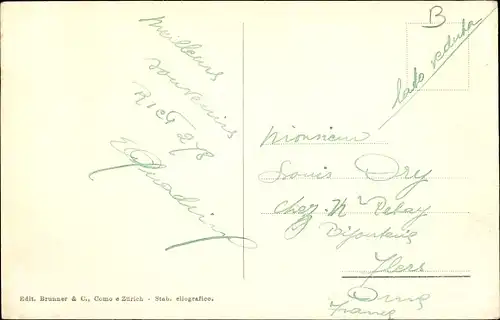 Meilleurs
souvenirs
B
lato veduta
Monsieur
Louis Dry
chez Mr Pelay
Bijouterie
Flers
Orne
France
Edit. Brunner & C., Como e Zürich - Stab. eliografico.